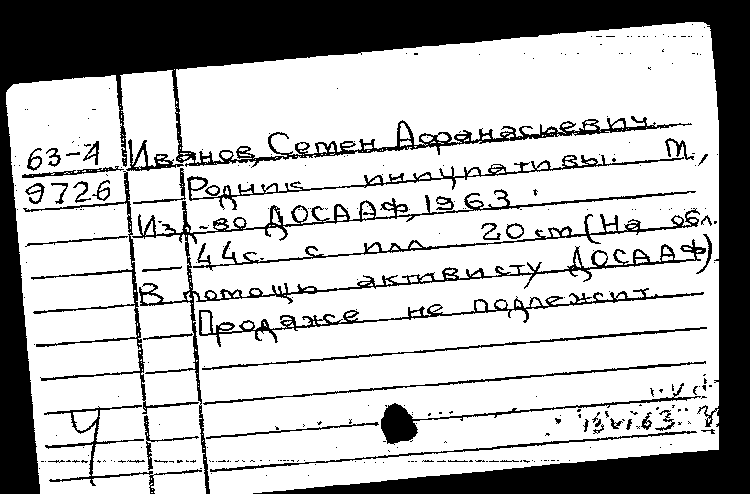 63-4 Иванов, Семен Афанасьевич.
9726 Родник инициативы. М.,
Изд-во ДОСААФ, 1963.
44с. с илл. 20 cm (На обл.
В помощь активисту ДОСААФ)
Продаже не подлежит.
Ч
13 VI 63